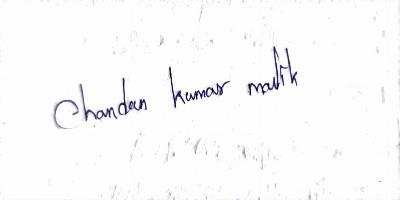 Chandan kumar malik